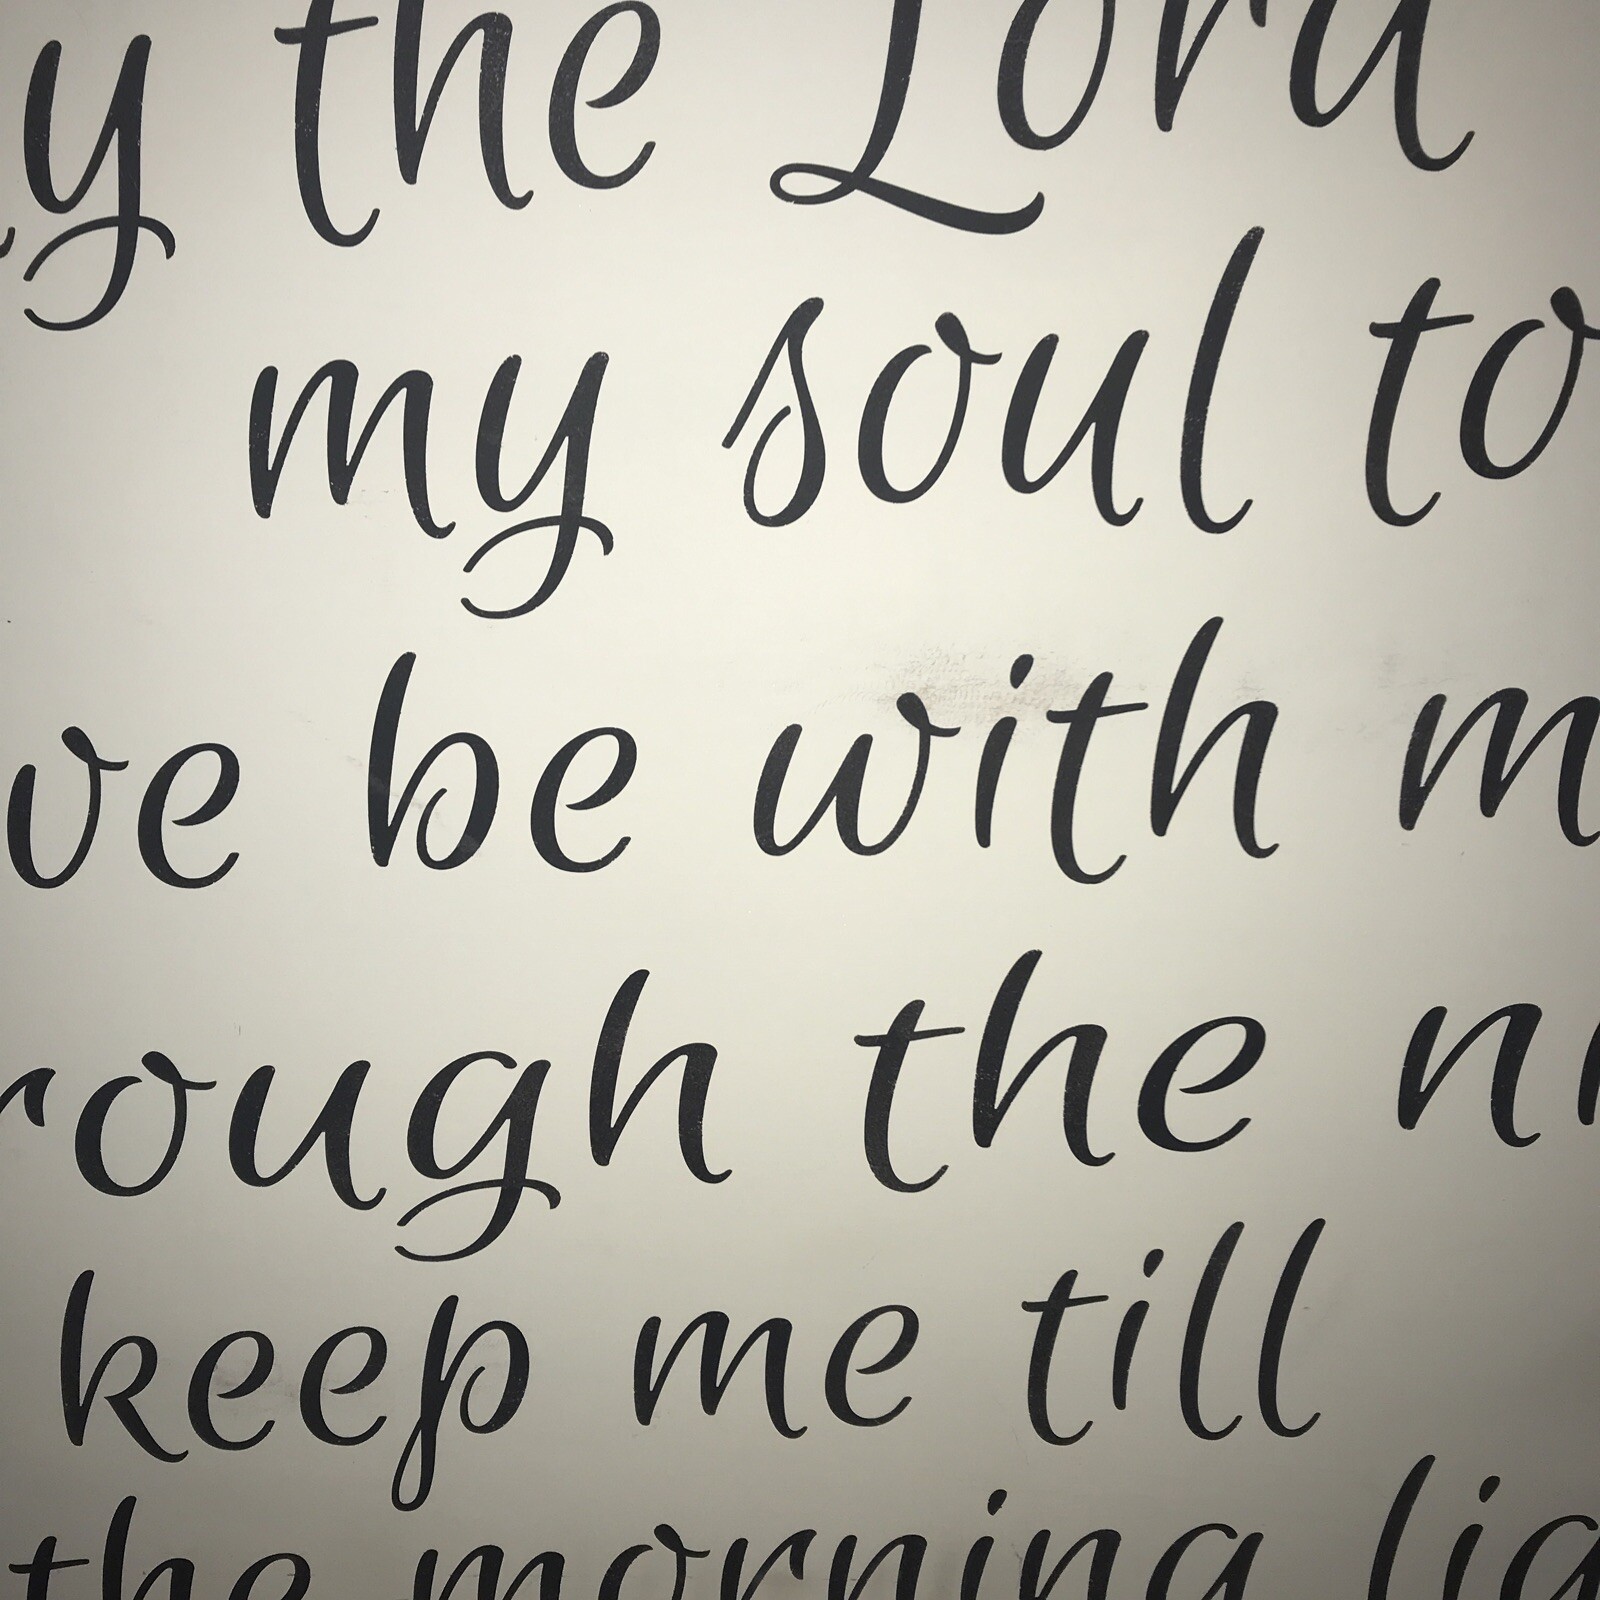 y the Lord
my soul to
ve be with m
rough the ni
keep me till
the morning lig